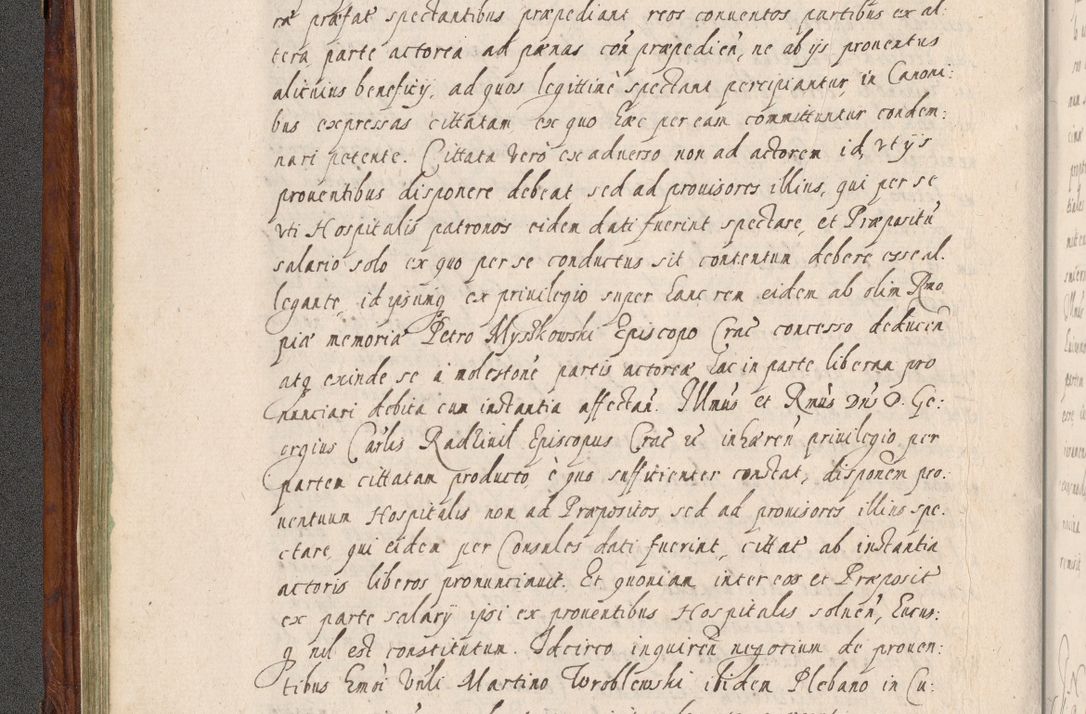 ræ præfat spectantibus præpediant reos conuentos partibus ex al
tera parte actorea ad pænas con præpedien, ne ab ijs prouentus
alicuius beneficij, ad quos legittime spectant percipiantur, in Canoni:
bus expressas cittatam ex quo hæc per eam committuntur condem:
nari petente. Cittata vero ex aduerso non ad actorem id, vt ijs
prouentibus disponere debeat sed ad prouisores illius, qui per se
vti Hospitalis patronos eidem dati fuerint spectare, et Præpositu
salario solo ex quo per se conductus sit contentum debere esse al.
legante, id ipsumq ex priuilegio super hanc rem eidem ab olim Rmo
piæ memoriæ Petro Myszkowski Episcopo Crac concesso deducen
atq exinde se a molestone partis actoreæ hac in parte liberam pro
nunciari debita cum instantia affectan. Illmus et Rmus Dns D. Ge:
orgius Carlis Radziuil Episcopus Crac inhæren priuilegio per
partem cittatam producto, è quo sufficienter constat, disponem pro:
uentuum Hospitalis non ad Præpositos, sed ad prouisores illius spe.
ctare, qui eidem per Consules dati fuerint, cittat ab instantia
actoris liberos pronunciauit. Et quoniam inter eos et Præposit
ex parte salarij ipsi ex prouentibus Hospitalis soluen, hucus:
q nil est constitutum. Idcirco inquiren negotium de prouen:
tibus hmoi Vnli Martino Wroblewski ibidem Plebano in Cu: